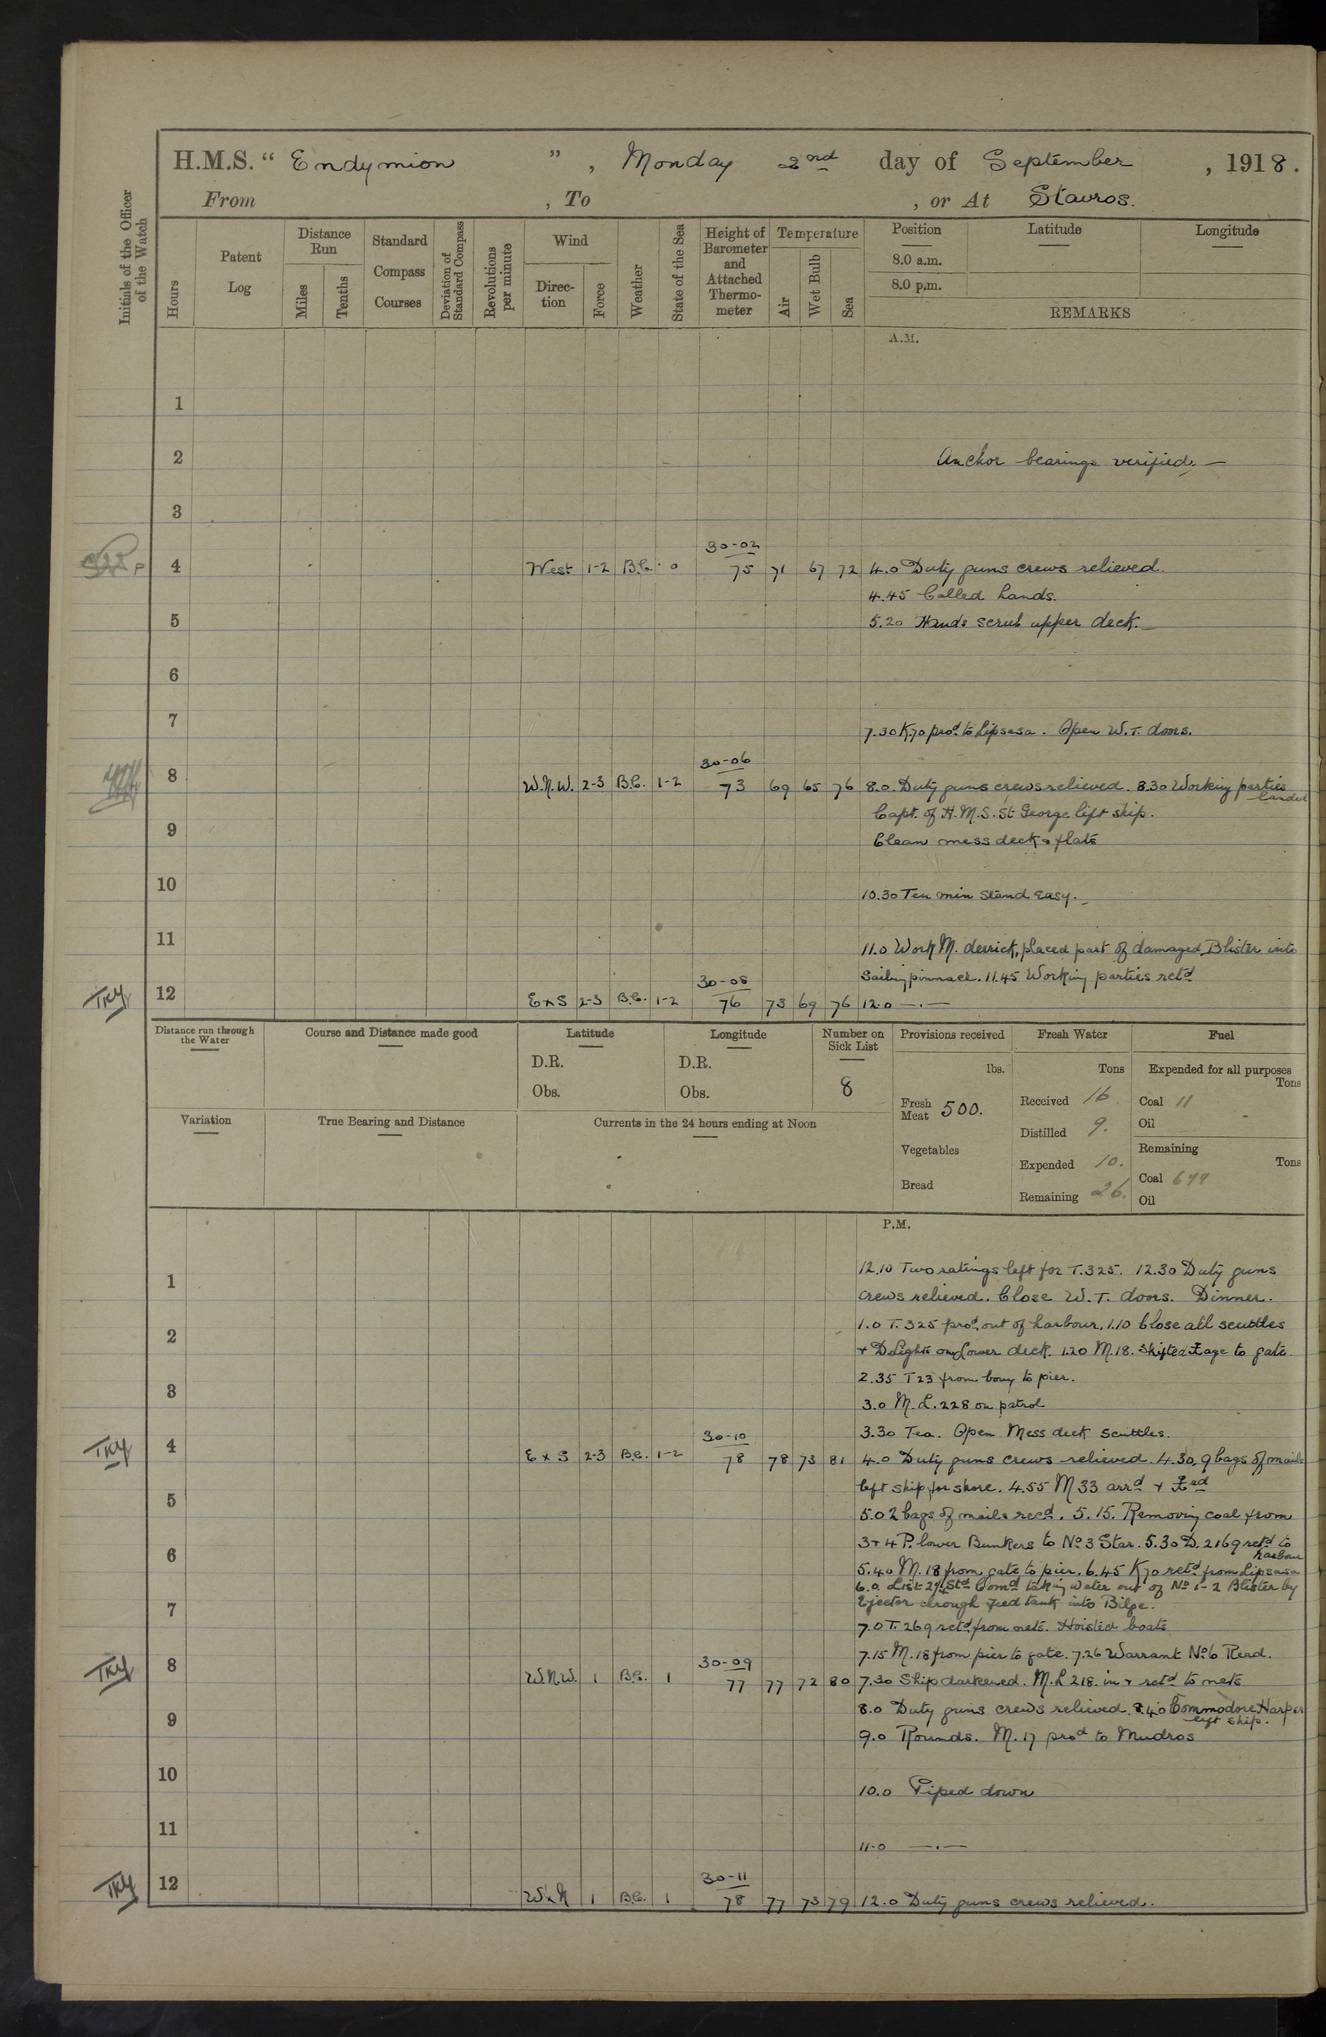 H.M.S. “ Endymion ” , Monday 2nd day of September , 1918 .
From , To , or At Stavros.
Initials of the Officer of the Watch
Hours
Patent Log
Distance Run
Miles
Tenths
Standard Compass Courses
Deviation of Standard Compass
Revolutions per minute
Wind
Direc-tion
Force
Weather
State of the Sea
Height of Barometer and Attached Thermo-meter
Temperature
Air
Wet Bulb
Sea
Position
8.0 a.m.
8.0 p.m.
Latitude
Longitude
REMARKS
A.M.
1
2 Anchor bearings verified. —
3
30-02
4 West 1-2 B.C. 0 75 71 67 72 4.0 Duty guns crews relieved.
4.45 Called hands.
5 5.20 Hands scrub upper deck. —
6
7 7.30 K.70 procd to Lipsasa. Open W.T. doors.
30-06
8 W.N.W. 2-3 B.C. 1-2 73 69 65 76 8.0. Duty guns crews relieved. 8.30 Working parties landed
Capt. of H.M.S. St George left ship.
9 Clean mess deck & flats
10 10.30 Ten min Stand Easy. —
11 11.0 Work M. derrick, placed part of damaged Blister into
Sailing pinnace. 11.45 Working parties retd
30-08
TKY 12 E x S 2-3 B.C. 1-2 76 73 69 76 12.0 —.—
Distance run through the Water
Course and Distance made good
Latitude
D.R.
Obs.
Longitude
D.R.
Obs.
Number on Sick List
8
Provisions received
lbs.
Fresh Meat 500.
Vegetables
Bread
Fresh Water
Tons
Received 16
Distilled 9.
Expended 10.
Remaining 26.
Fuel
Expended for all purposes
Tons
Coal 11
Oil -
Remaining
Tons
Coal 699
Oil
Variation
True Bearing and Distance
Currents in the 24 hours ending at Noon
P.M.
12.10 Two ratings left for T.325. 12.30 Duty guns
1 crews relieved. Close W.T. doors. Dinner.
1.0 T.325 procd out of harbour. 1.10 Close all scuttles
2 + D Lights on Lower deck. 1.20 M.18. shifted age to gate
2.35 T 23 from bouy to pier.
3 3.0 M.L. 228 on patrol
3.30 Tea. Open Mess deck Scuttles.
30-10
TKY 4 E x S 2-3 B.C. 1-2 78 78 73 81 4.0 Duty guns crews relieved. 4.30, 9 bags of mails
left ship for shore. 4.55 M 33 arrd +
5 5.0 2 bags of mails recd. 5.15. Removing coal from
3 + 4 P. lower Bunkers to No 3 Star. 5.30 D.2169 retd to harbour
6 5.40 M.18 from gate to pier. 6.45 K70 retd from Lipsasa
6.0. List 2¼° Std Comd taking water out of No 1-2 Blister by
7 Ejector through feed tank into Bilge.
7.0 T. 269 retd from nets. Hoisted boats
7.15 M.18 from pier to gate. 7.26 Warrant No 6 Read.
30-09
TKY 8 W.N.W. 1 B.C. 1 77 77 72 80 7.30 Ship darkened. M.L 218. in + retd to nets
8.0 Duty guns crews relieved. 8.40 Commodore Harper left ship.
9 9.0 Rounds. M.17 procd to Mudros
10 10.0 Piped down
11 11.0 —.—
30-11
TKY 12 W x N 1 B.C. 1 78 77 73 79 12.0 Duty guns crews relieved.